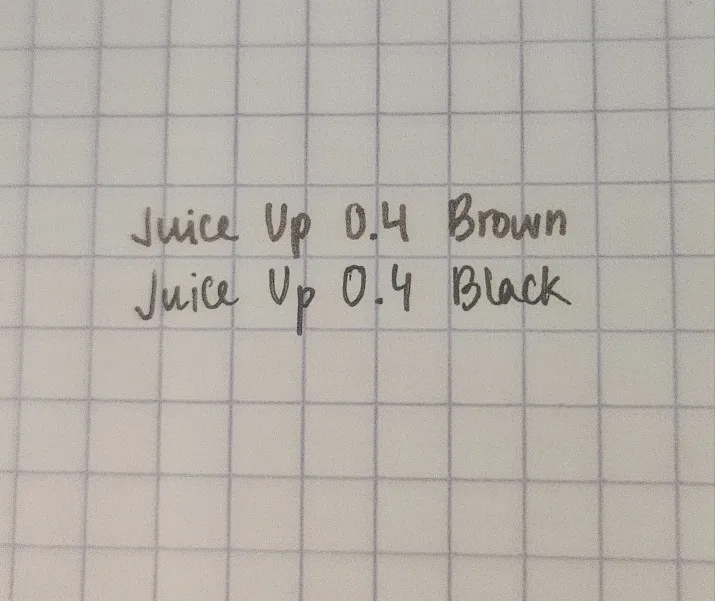 Juice Up 0.4 Brown
Juice Up 0.4 Black